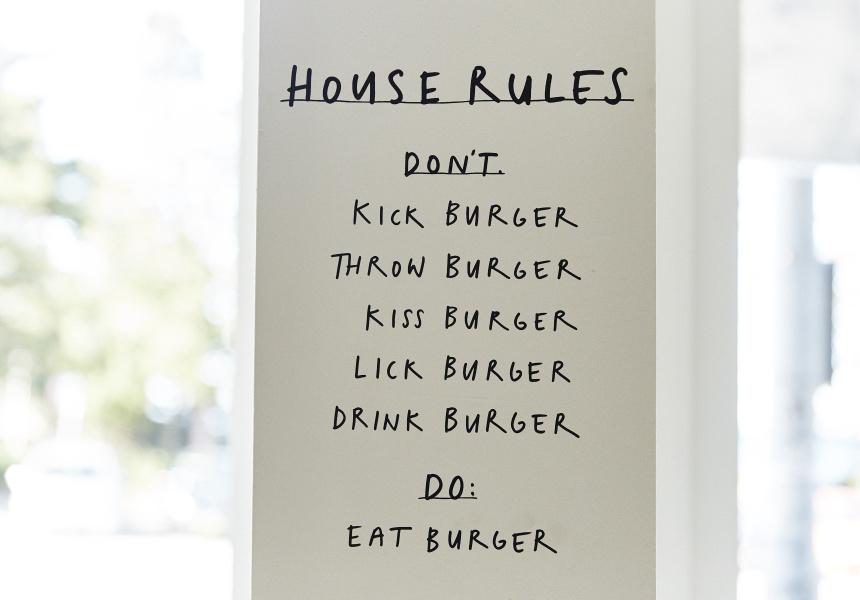 HOUSE RULES
DON'T.
KICK BURGER
THROW BURGER
KISS BURGER
LICK BURGER
DRINK BURGER
DO:
EAT BURGER